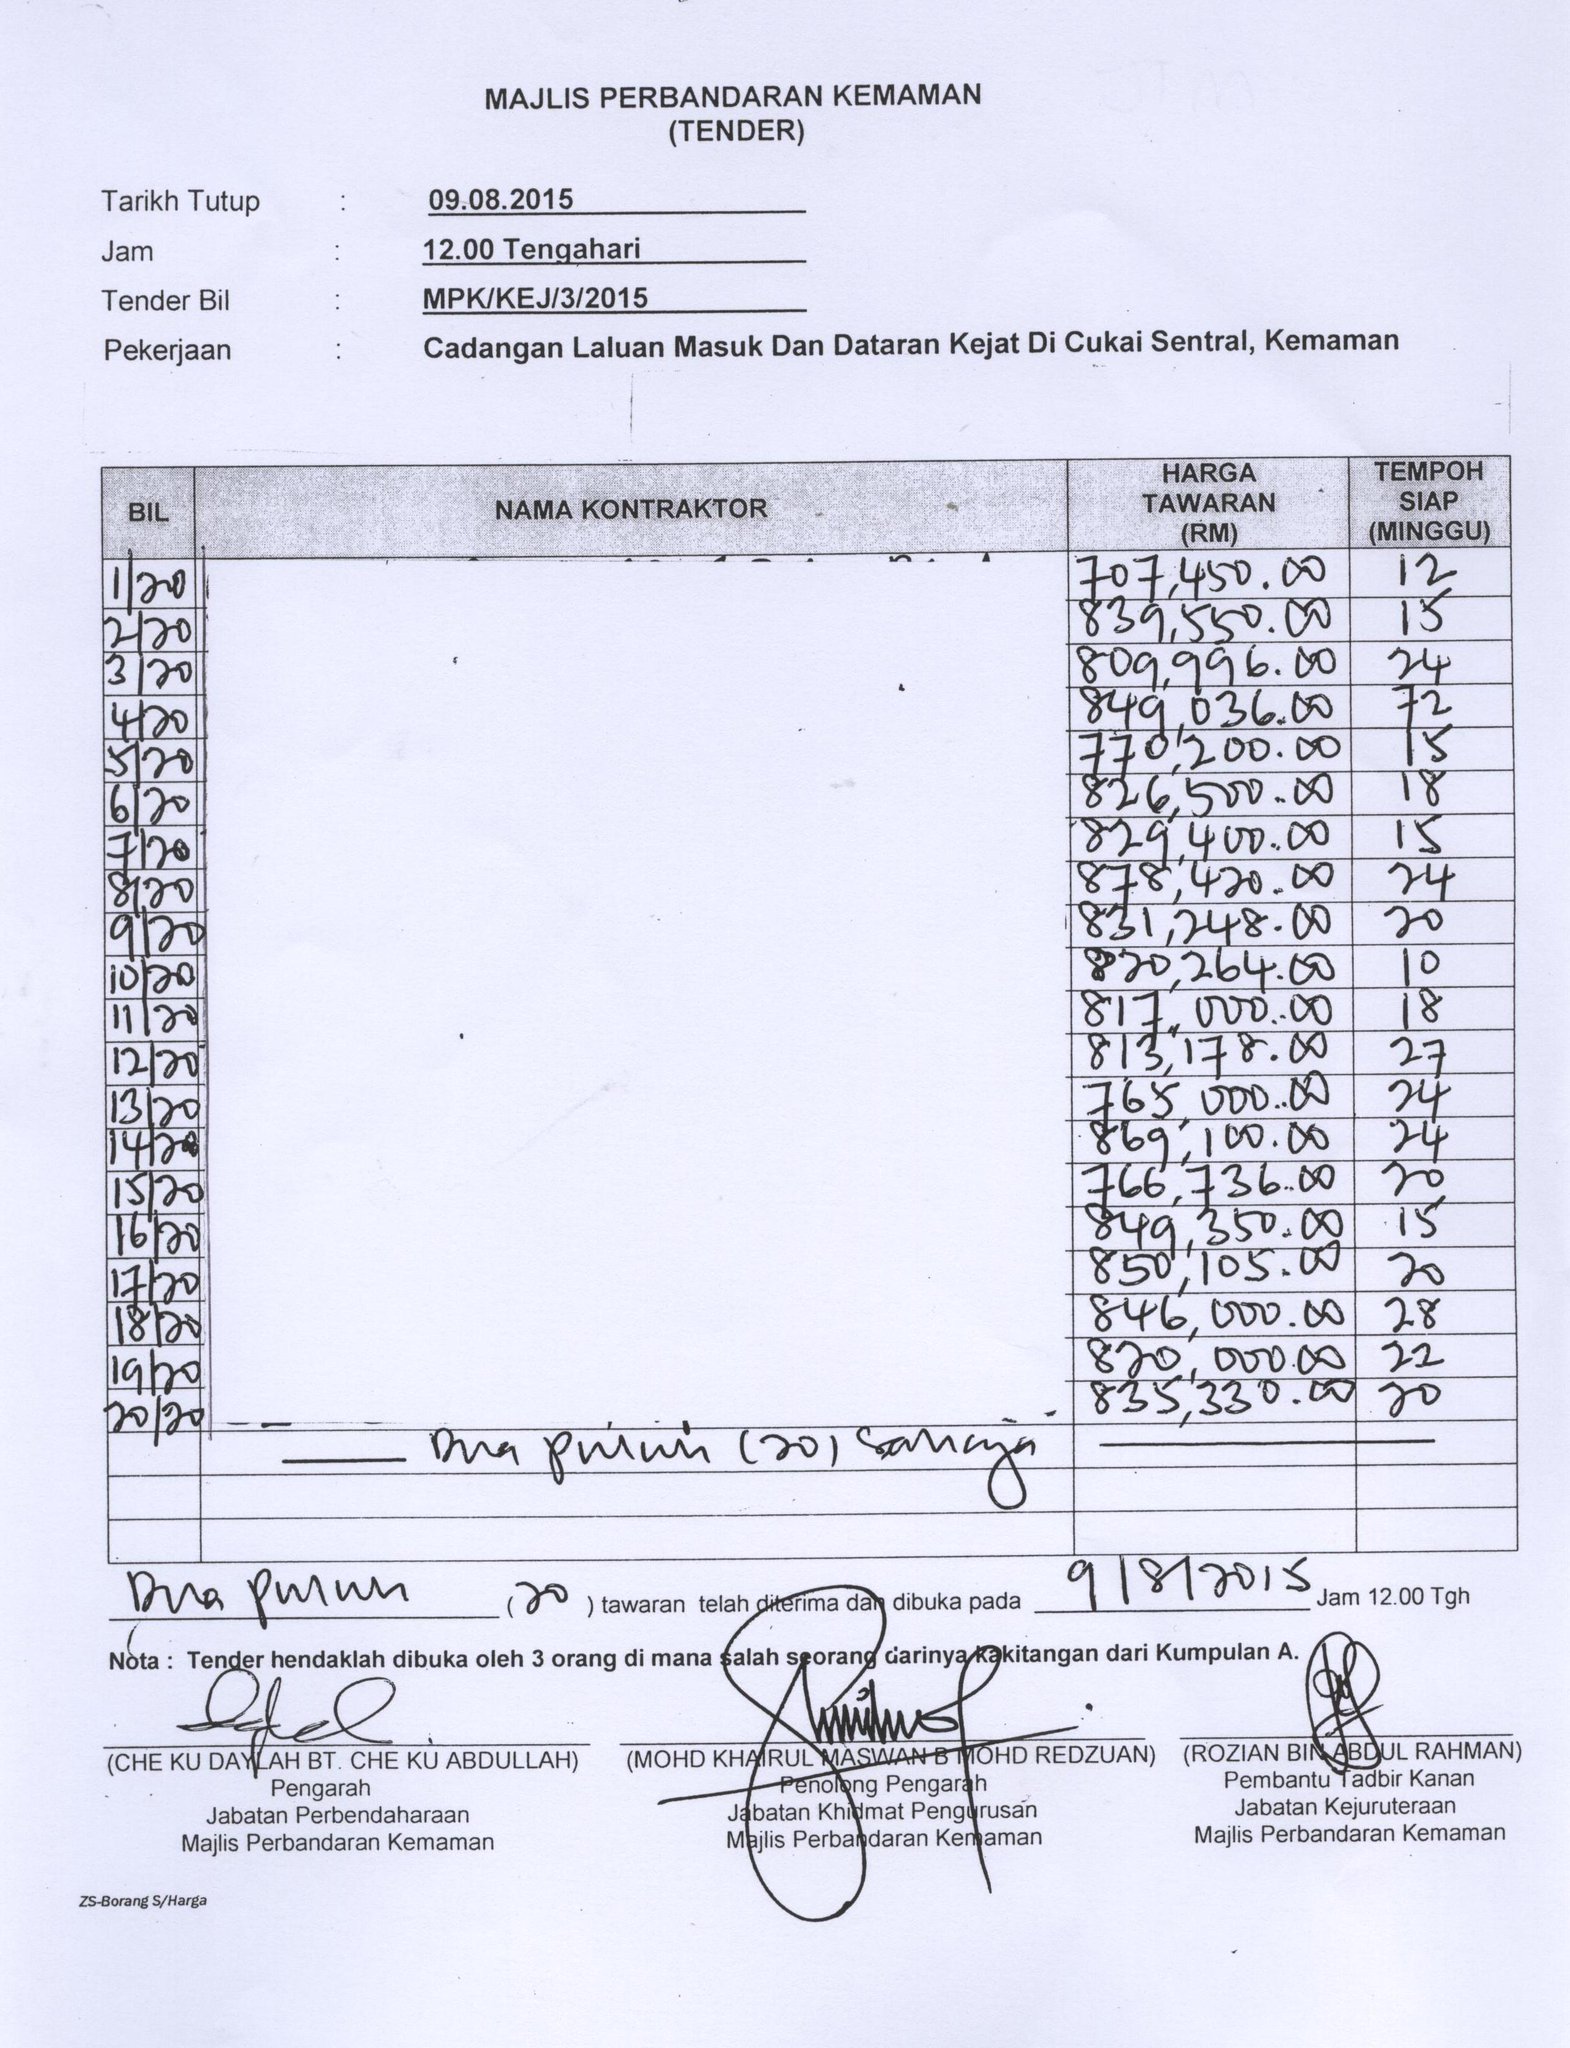 MAJLIS PERBANDARAN KEMAMAN
(TENDER)
Tarikh Tutup : 09.08.2015
Jam : 12.00 Tengahari
Tender Bil : MPK/KEJ/3/2015
Pekerjaan : Cadangan Laluan Masuk Dan Dataran Kejat Di Cukai Sentral, Kemaman
BIL NAMA KONTRAKTOR HARGA TAWARAN (RM) TEMPOH SIAP (MINGGU)
1/20 707,450.00 12
2/20 839,550.00 15
3/20 809,996.00 24
4/20 849,036.00 72
5/20 770,200.00 15
6/20 826,500.00 18
7/20 829,400.00 15
8/20 878,420.00 24
9/20 831,248.00 20
10/20 820,264.00 10
11/20 817,000.00 18
12/20 813,178.00 27
13/20 765,000.00 24
14/20 869,100.00 24
15/20 766,736.00 20
16/20 849,350.00 15
17/20 850,105.00 20
18/20 846,000.00 28
19/20 820,000.00 22
20/20 835,330.00 20
Dua puluh (20) sahaja
Dua puluh (20) tawaran telah diterima dan dibuka pada 9/8/2015 Jam 12.00 Tgh
Nota : Tender hendaklah dibuka oleh 3 orang di mana salah seorang darinya kakitangan dari Kumpulan A.
(CHE KU DAYLAH BT. CHE KU ABDULLAH) (MOHD KHAIRUL MASWAN B MOHD REDZUAN) (ROZIAN BIN ABDUL RAHMAN)
Pengarah Penolong Pengarah Pembantu Tadbir Kanan
Jabatan Perbendaharaan Jabatan Khidmat Pengurusan Jabatan Kejuruteraan
Majlis Perbandaran Kemaman Majlis Perbandaran Kemaman Majlis Perbandaran Kemaman
ZS-Borang S/Harga